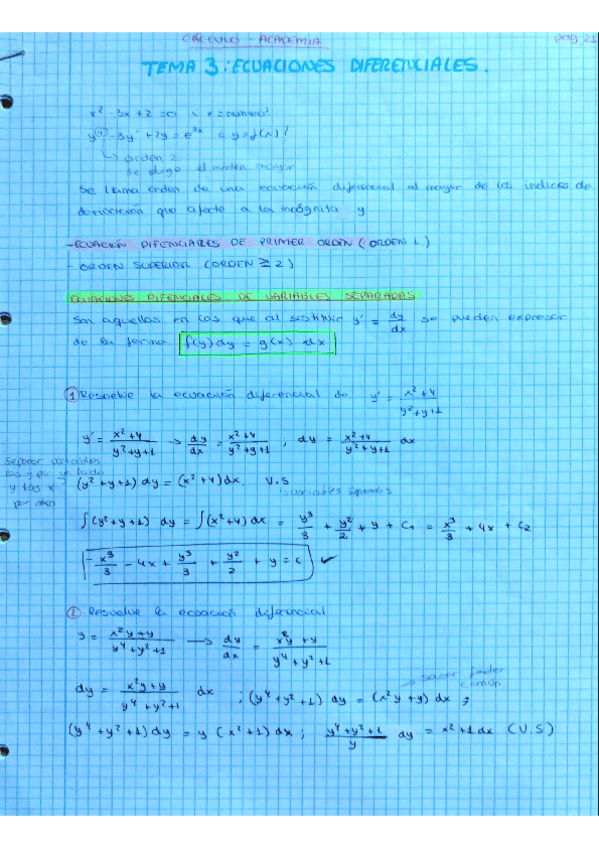 CÁLCULO - ACADEMIA pag 21
TEMA 3: ECUACIONES DIFERENCIALES.
x² - 3x + 2 = 0 ¿ x = numero?
y'' - 3y' + 2y = e³ˣ ¿ y = f(x)?
↳ orden 2
se elige el orden mayor
Se llama orden de una ecuación diferencial al mayor de los indices de
derivación que afecte a la incógnita y
- ECUACIÓN DIFENCIARES DE PRIMER ORDEN (ORDEN 1)
- ORDEN SUPERIOR (ORDEN ≥ 2)
ECUACIONES DIFENCIALES DE VARIABLES SEPARADAS
Son aquellas en las que al sustituir y' = dy/dx se pueden expresar
de la forma f(y) dy = g(x) dx
① Resuelve la ecuación diferencial de y' = x²+4/y²+y+1
y' = x²+4/y²+y+1 → dy/dx = x²+4/y²+y+1 ; dy = x²+4/y²+y+1 dx
separar
las y por un lado
y las x
por otro
(y²+y+1) dy = (x²+4) dx. V.S
↳ variables separadas
∫(y²+y+1) dy = ∫(x²+4) dx = y³/3 + y²/2 + y + C₁ = x³/3 + 4x + C₂
- x³/3 - 4x + y³/3 + y²/2 + y = c ✓
② Resuelve la ecuación diferencial
y = x²y+y/y⁴+y²+1 → dy/dx = x²y+y/y⁴+y²+1
→ sacar factor
común
dy = x²y+y/y⁴+y²+1 dx ; (y⁴+y²+1) dy = (x²y+y) dx ;
(y⁴+y²+1) dy = y (x²+1) dx ; y⁴+y²+1/y dy = x²+1 dx (V.S)